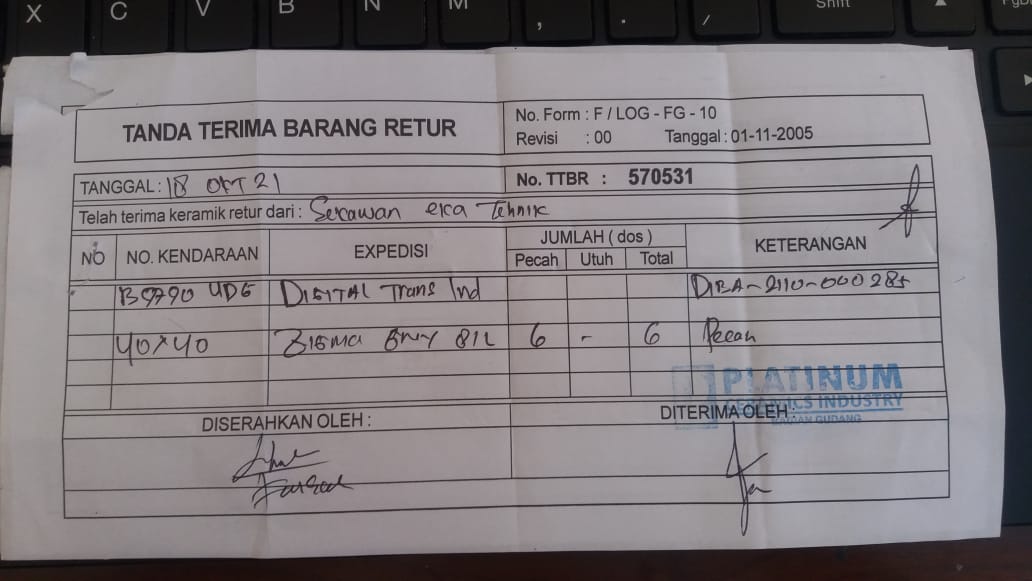 X C V B N M , . / Shift
TANDA TERIMA BARANG RETUR
No. Form : F / LOG - FG - 10
Revisi : 00 Tanggal : 01-11-2005
TANGGAL : 18 OKT 21
No. TTBR : 570531
Telah terima keramik retur dari : Sekawan eka Tehnik
NO NO. KENDARAAN EXPEDISI JUMLAH ( dos ) KETERANGAN
Pecah Utuh Total
B9790 UDG DIGITAL Trans Ind DIBA-2110-000285
40x40 6 - 6 Pecah
PLATINUM
CERAMICS INDUSTRY
BAGIAN GUDANG
DISERAHKAN OLEH : DITERIMA OLEH :
Faisal